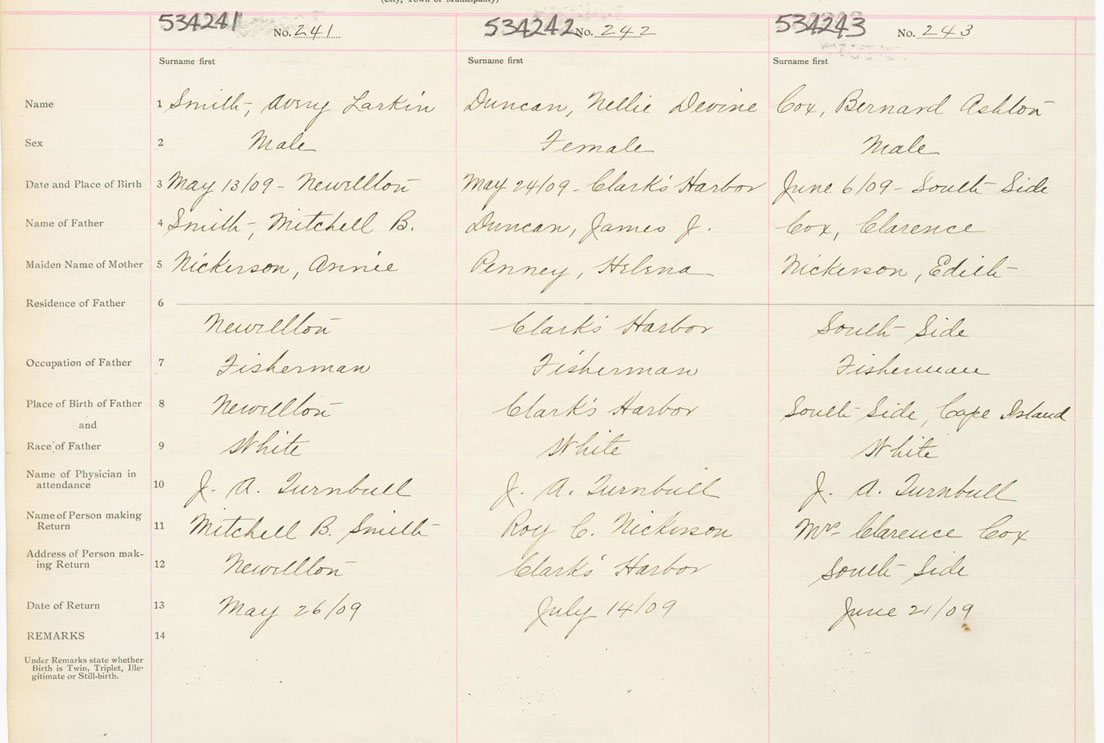 (City, Town or Municipality)
534241 No. 241 534242 No. 242 534243 No. 243
Surname first Surname first Surname first
Name 1 Smith, Avery Larkin Duncan, Nellie Devine Cox, Bernard Ashton
Sex 2 Male Female Male
Date and Place of Birth 3 May 13/09 - Newellton May 24/09 - Clark's Harbor June 6/09 - South Side
Name of Father 4 Smith, Mitchell B. Duncan, James J. Cox, Clarence
Maiden Name of Mother 5 Nickerson, Annie Penney, Helena Nickerson, Edith
Residence of Father 6
Newellton Clark's Harbor South Side
Occupation of Father 7 Fisherman Fisherman Fisherman
Place of Birth of Father 8 Newellton Clark's Harbor South Side, Cape Island
and
Race of Father 9 White White White
Name of Physician in
attendance 10 J. A. Turnbull J. A. Turnbull J. A. Turnbull
Name of Person making
Return 11 Mitchell B. Smith Roy C. Nickerson Mrs Clarence Cox
Address of Person mak-
ing Return 12 Newellton Clark's Harbor South Side
Date of Return 13 May 26/09 July 14/09 June 21/09
REMARKS 14
Under Remarks state whether
Birth is Twin, Triplet, Ille-
gitimate or Still-birth.